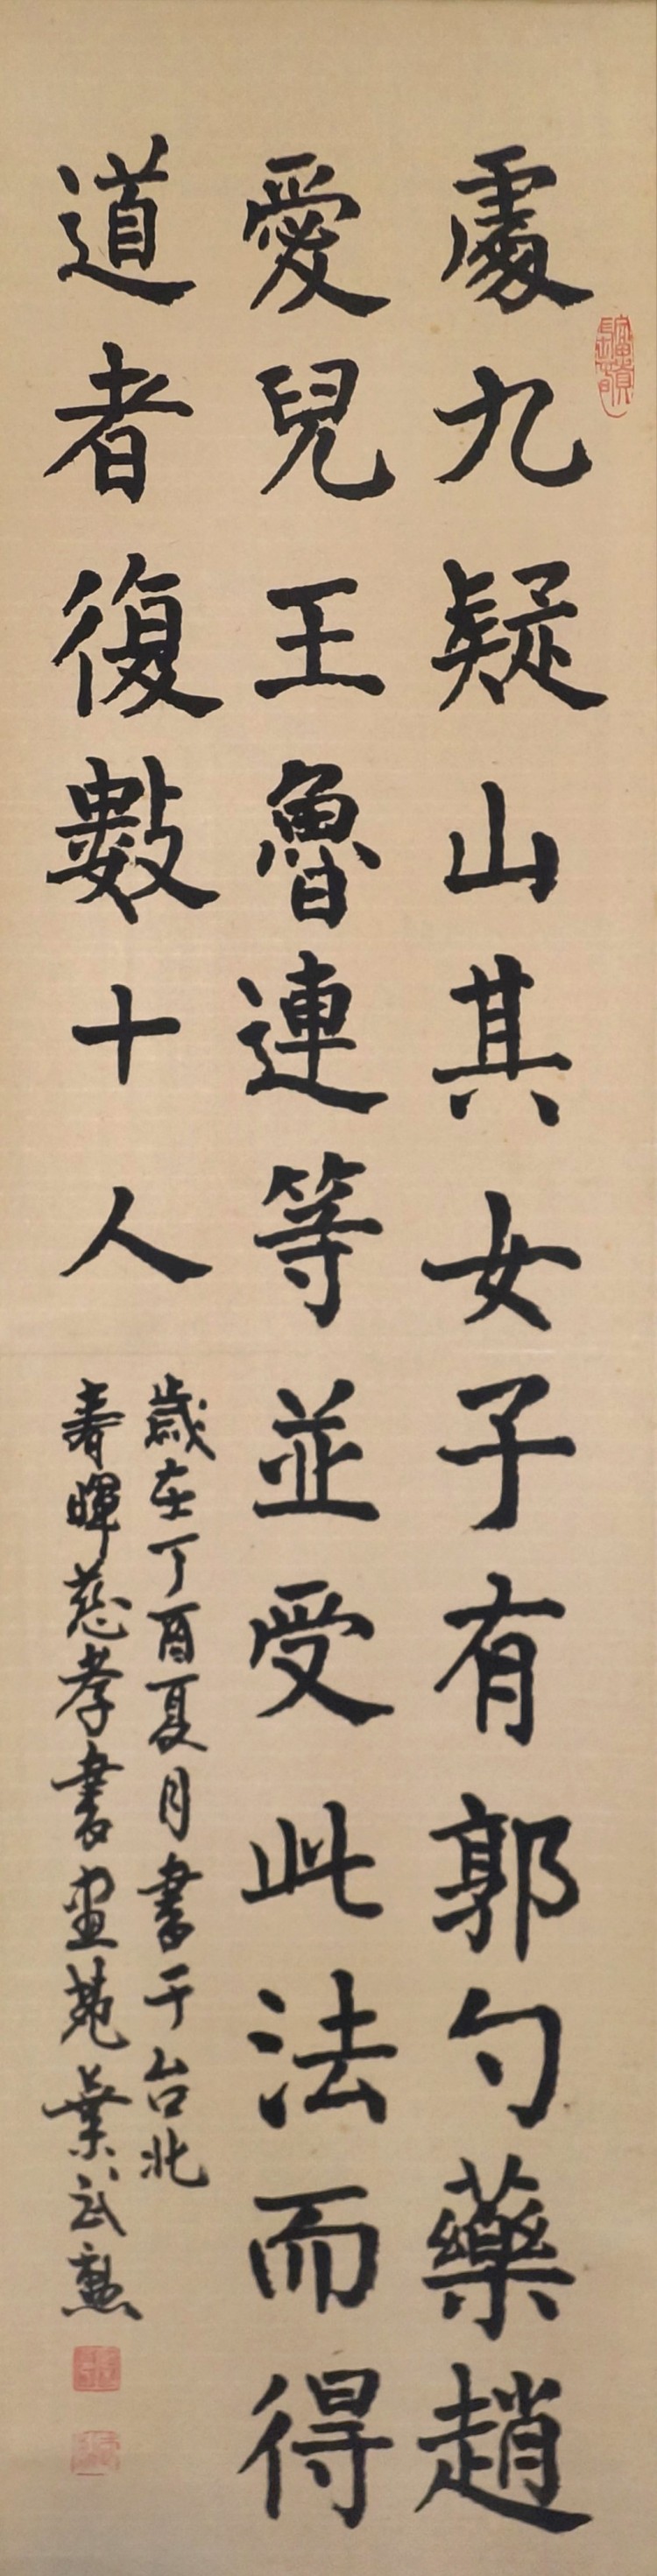 處九疑山其女子有郭勺藥趙
愛兒王魯連等並受此法而得
道者復數十人
歲在丁酉夏月書于台北
春暉慈孝書畫苑葉武勲